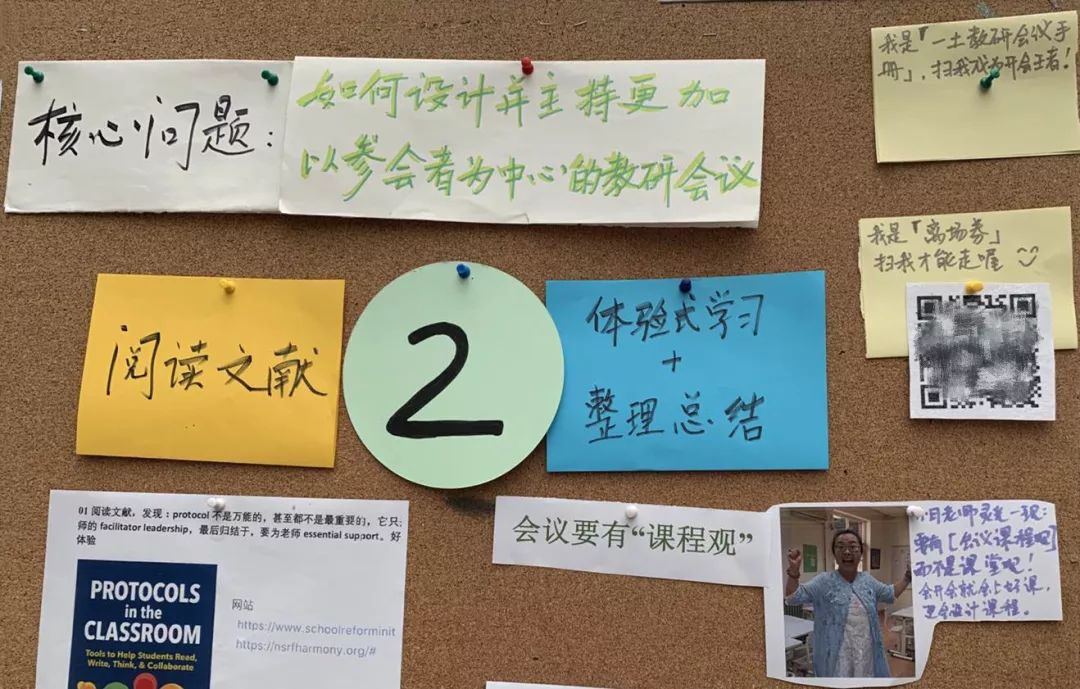 核心问题:
如何设计并主持更加
以参会者为中心的教研会议
我是「一土教研会议手
册」,扫我成为开会王者!
我是「离场券」
扫我才能走喔
阅读文献
2
体验式学习
+
整理总结
01 阅读文献,发现:protocol 不是万能的,甚至都不是最重要的,它只
师的 facilitator leadership,最后归结于,要为老师 essential support。好
体验
PROTOCOLS
in the
CLASSROOM
Tools to Help Students Read,
Write, Think, & Collaborate
网站
https://www.schoolreforminit
https://nsrfharmony.org/#
会议要有“课程观”
老师灵光一现:
要有[会议课程观]
而不是课堂观!
会开会就会上好课,
更会设计课程。